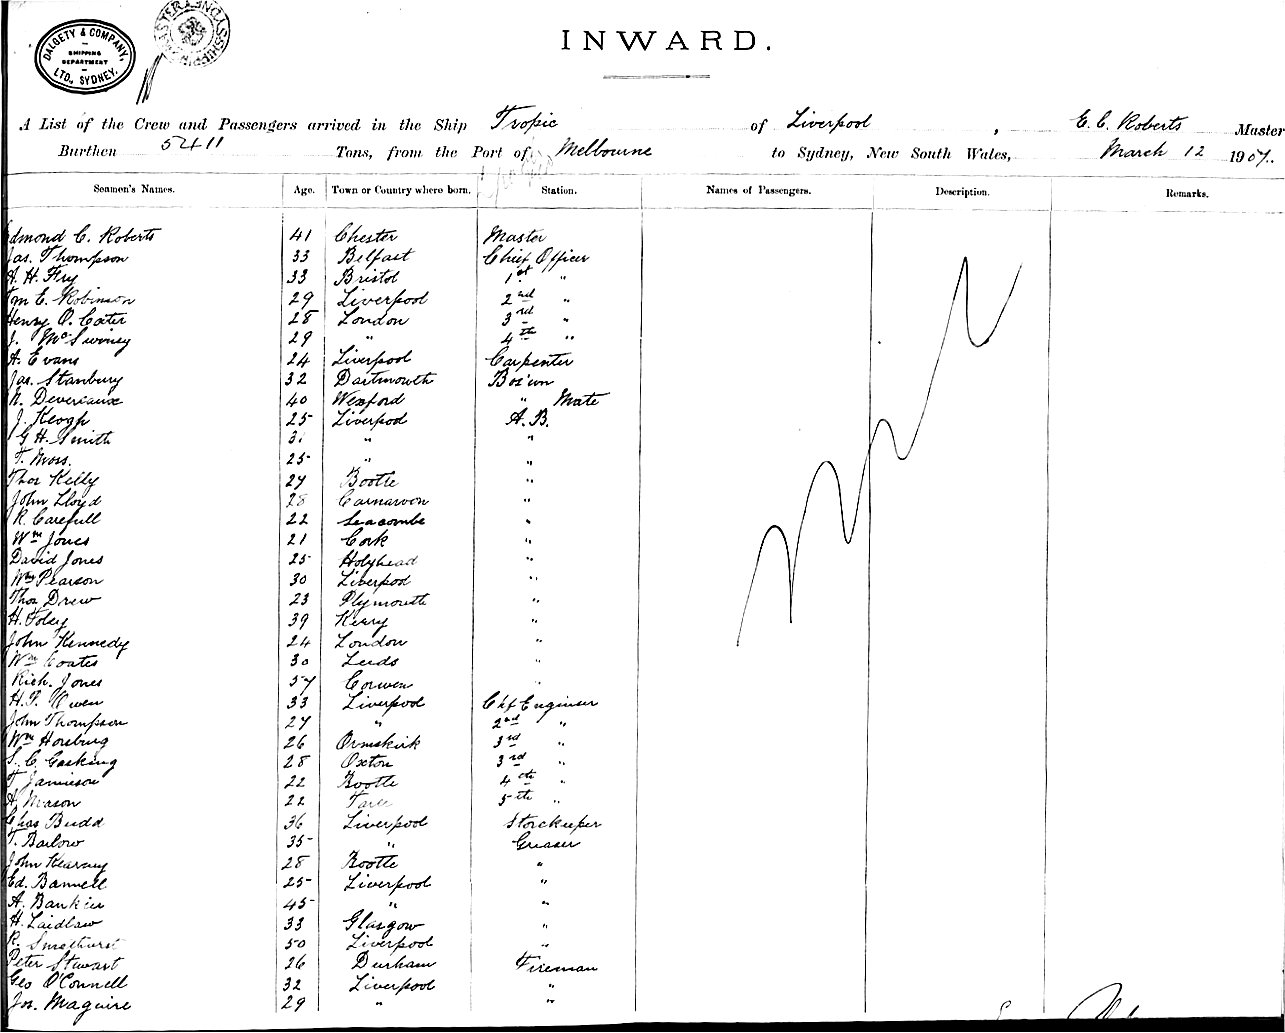 DALGETY & COMPANY, LTD., SYDNEY.
SHIPPING DEPARTMENT
INWARD.
A List of the Crew and Passengers arrived in the Ship Tropic of Liverpool, E. C. Roberts Master
Burthen 5411 Tons, from the Port of Melbourne to Sydney, New South Wales, March 12 1907.
Seamen's Names. Age. Town or Country where born. Station. Names of Passengers. Description. Remarks.
Edmond C. Roberts 41 Chester Master
Jas. Thompson 33 Belfast Chief Officer
A. H. Fry 33 Bristol 1st "
E. Robinson 29 Liverpool 2nd "
Henry O. Cater 28 London 3rd "
J. McSwiney 29 " 4th "
A. Evans 24 Liverpool Carpenter
Jas. Stanbury 32 Dartmouth Bos'un
N. Devereaux 40 Wexford " Mate
J. Keogh 25 Liverpool A.B.
G H. Smith 31 " "
T. Moss. 25 " "
Thos Kelly 27 Bootle "
John Lloyd 28 Carnarvon "
R. Carefull 22 Seacombe "
Wm Jones 21 Cork "
David Jones 25 Holyhead "
Wm Pearson 30 Liverpool "
Thos Drew 23 Plymouth "
H. Foley 39 Kerry "
John Kennedy 24 London "
Wm Coates 30 Leeds "
Rich. Jones 57 Corwen "
H. P. Owen 33 Liverpool Chf Engineer
John Thompson 27 " 2nd "
Wm Horsburg 26 Ormskirk 3rd "
S. C. Gasking 28 Oxton 3rd "
T Jamieson 22 Bootle 4th "
A. Mason 22 5th "
Chas Budd 36 Liverpool Storekeeper
T. Barlow 35 " Greaser
John Kearney 28 Bootle "
Ed. Bannell 25 Liverpool "
A. Bankier 45 " "
H. Laidlaw 33 Glasgow "
R. Smethurst 50 Liverpool "
Peter Stewart 26 Durham Fireman
Geo O'Connell 32 Liverpool "
Jos. Maguire 29 " "